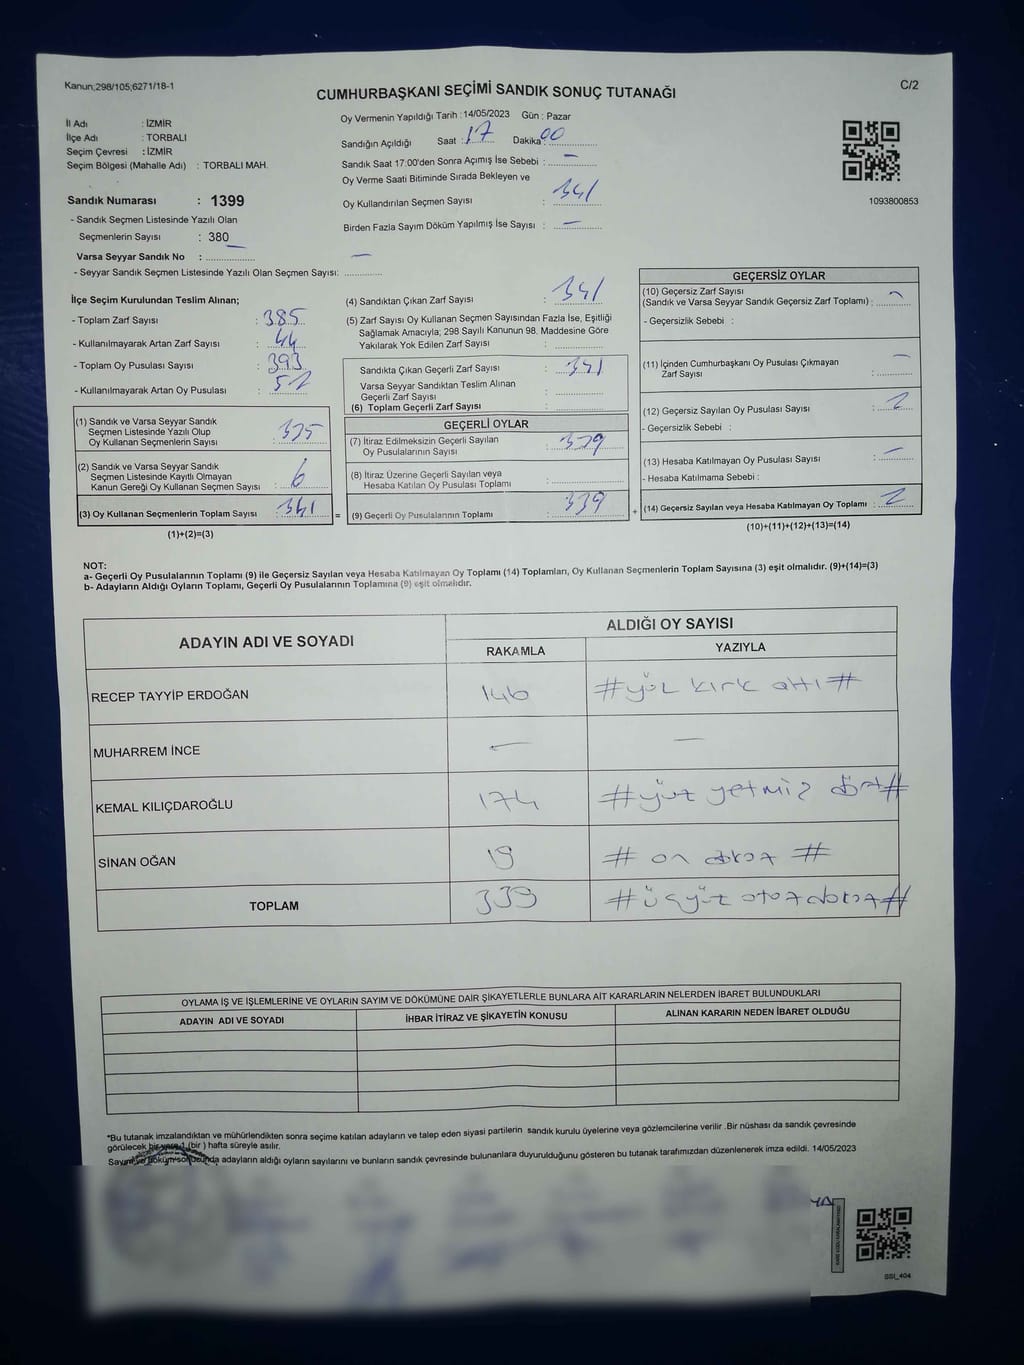 Kanun;298/105;6271/18-1
C/2
CUMHURBAŞKANI SEÇİMİ SANDIK SONUÇ TUTANAĞI
İl Adı : İZMİR
İlçe Adı : TORBALI
Seçim Çevresi : İZMİR
Seçim Bölgesi (Mahalle Adı) : TORBALI MAH.
Sandık Numarası : 1399
- Sandık Seçmen Listesinde Yazılı Olan
Seçmenlerin Sayısı : 380
Varsa Seyyar Sandık No : —
- Seyyar Sandık Seçmen Listesinde Yazılı Olan Seçmen Sayısı:
Oy Vermenin Yapıldığı Tarih : 14/05/2023 Gün : Pazar
Sandığın Açıldığı Saat : 17 Dakika 00
Sandık Saat 17:00'den Sonra Açımış İse Sebebi : —
Oy Verme Saati Bitiminde Sırada Bekleyen ve
Oy Kullandırılan Seçmen Sayısı : 341
Birden Fazla Sayım Döküm Yapılmış İse Sayısı : —
1093800853
İlçe Seçim Kurulundan Teslim Alınan;
- Toplam Zarf Sayısı : 385
- Kullanılmayarak Artan Zarf Sayısı : 44
- Toplam Oy Pusulası Sayısı : 393
- Kullanılmayarak Artan Oy Pusulası : 52
(1) Sandık ve Varsa Seyyar Sandık
Seçmen Listesinde Yazılı Olup
Oy Kullanan Seçmenlerin Sayısı : 335
(2) Sandık ve Varsa Seyyar Sandık
Seçmen Listesinde Kayıtlı Olmayan
Kanun Gereği Oy Kullanan Seçmen Sayısı : 6
(3) Oy Kullanan Seçmenlerin Toplam Sayısı : 341
(1)+(2)=(3)
(4) Sandıktan Çıkan Zarf Sayısı : 341
(5) Zarf Sayısı Oy Kullanan Seçmen Sayısından Fazla İse, Eşitliği
Sağlamak Amacıyla; 298 Sayılı Kanunun 98. Maddesine Göre
Yakılarak Yok Edilen Zarf Sayısı :
Sandıkta Çıkan Geçerli Zarf Sayısı : 341
Varsa Seyyar Sandıktan Teslim Alınan
Geçerli Zarf Sayısı :
(6) Toplam Geçerli Zarf Sayısı :
GEÇERLİ OYLAR
(7) İtiraz Edilmeksizin Geçerli Sayılan
Oy Pusulalarının Sayısı : 339
(8) İtiraz Üzerine Geçerli Sayılan veya
Hesaba Katılan Oy Pusulası Toplamı :
= (9) Geçerli Oy Pusulalarının Toplamı : 339
GEÇERSİZ OYLAR
(10) Geçersiz Zarf Sayısı
(Sandık ve Varsa Seyyar Sandık Geçersiz Zarf Toplamı) : —
- Geçersizlik Sebebi :
(11) İçinden Cumhurbaşkanı Oy Pusulası Çıkmayan
Zarf Sayısı : —
(12) Geçersiz Sayılan Oy Pusulası Sayısı : 2
- Geçersizlik Sebebi :
(13) Hesaba Katılmayan Oy Pusulası Sayısı : —
- Hesaba Katılmama Sebebi :
+ (14) Geçersiz Sayılan veya Hesaba Katılmayan Oy Toplamı : 2
(10)+(11)+(12)+(13)=(14)
NOT:
a- Geçerli Oy Pusulalarının Toplamı (9) ile Geçersiz Sayılan veya Hesaba Katılmayan Oy Toplamı (14) Toplamları, Oy Kullanan Seçmenlerin Toplam Sayısına (3) eşit olmalıdır. (9)+(14)=(3)
b- Adayların Aldığı Oyların Toplamı, Geçerli Oy Pusulalarının Toplamına (9) eşit olmalıdır.
ADAYIN ADI VE SOYADI
ALDIĞI OY SAYISI
RAKAMLA YAZIYLA
RECEP TAYYİP ERDOĞAN 146 #yüz kırk altı#
MUHARREM İNCE — —
KEMAL KILIÇDAROĞLU 174 #yüz yetmiş dört#
SİNAN OĞAN 19 # on dokuz #
TOPLAM 339 #üçyüz otuz dokuz#
OYLAMA İŞ VE İŞLEMLERİNE VE OYLARIN SAYIM VE DÖKÜMÜNE DAİR ŞİKAYETLERLE BUNLARA AİT KARARLARIN NELERDEN İBARET BULUNDUKLARI
ADAYIN ADI VE SOYADI İHBAR İTİRAZ VE ŞİKAYETİN KONUSU ALINAN KARARIN NEDEN İBARET OLDUĞU
*Bu tutanak imzalandıktan ve mühürlendikten sonra seçime katılan adayların ve talep eden siyasi partilerin sandık kurulu üyelerine veya gözlemcilerine verilir .Bir nüshası da sandık çevresinde
görülecek bir yere 1 (bir ) hafta süreyle asılır.
Sayım ve döküm sonucunda adayların aldığı oyların sayılarını ve bunların sandık çevresinde bulunanlara duyurulduğunu gösteren bu tutanak tarafımızdan düzenlenerek imza edildi. 14/05/2023
SSI_404